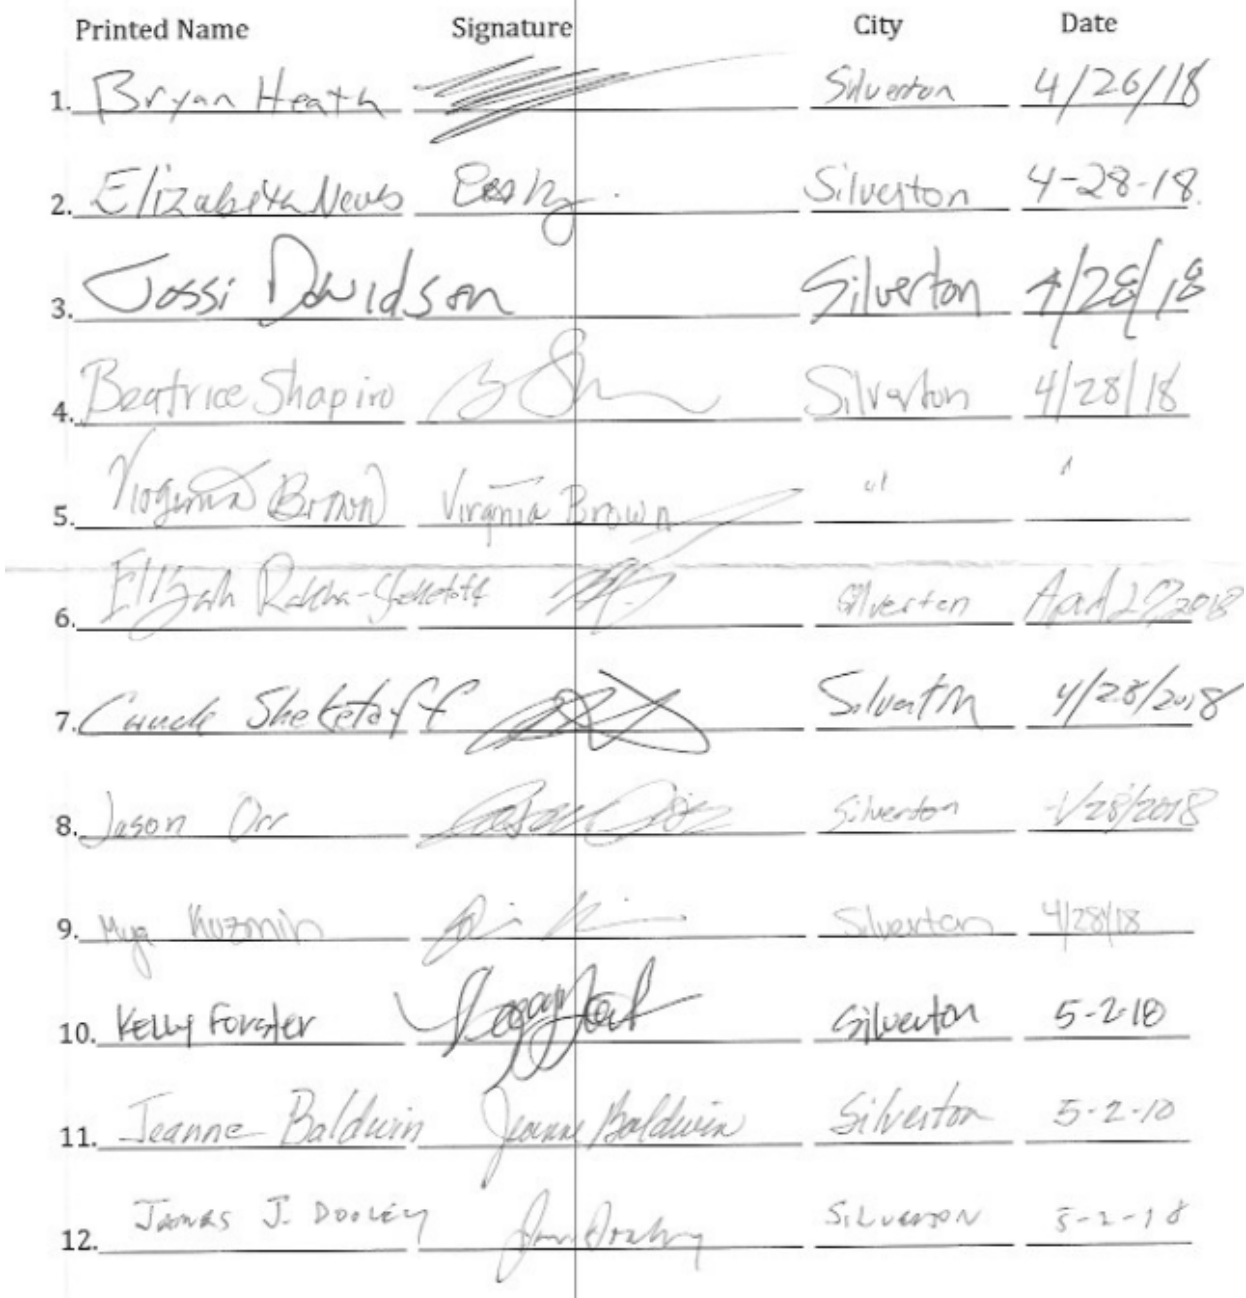 Printed Name Signature City Date
1. Bryan Heath Silverton 4/26/18
2. Elizabeth Neves Silverton 4-28-18.
3. Jossi Davidson Silverton 4/28/18
4. Beatrice Shapiro Silverton 4/28/18
5. Virginia Brown Virginia Brown " "
6. Elizah Rakha-Sheketoff Silverton April 2018
7. Sheketoff Silverton 4/28/2018
8. Jason Orr Jason Orr Silverton 4/28/2018
9. Mya Kuzmin Silverton 4/28/18
10. Kelly Forster Silverton 5-2-18
11. Jeanne Baldwin Jeanne Baldwin Silverton 5-2-18
12. James J. Dooley Silverton 5-2-18